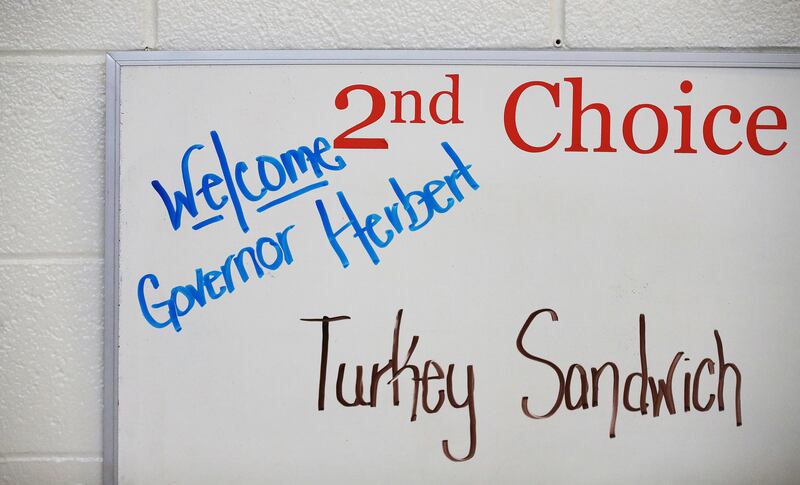 2nd Choice
Welcome
Governor Herbert
Turkey Sandwich